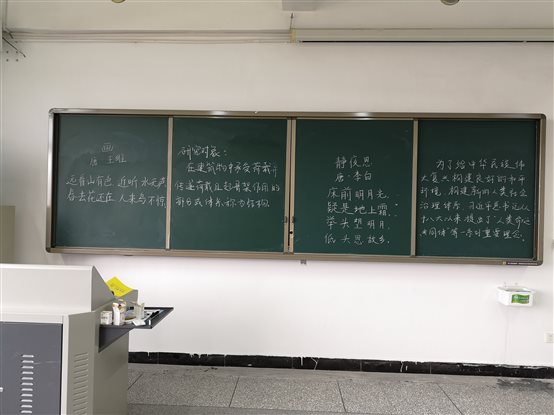 画
唐 王维
远看山有色 近听水无声
春去花还在 人来鸟不惊
研究对象:
在建筑物中承受荷载并
传递荷载且起骨架作用的
部分或体系,称为结构
静夜思
唐·李白
床前明月光,
疑是地上霜。
举头望明月,
低头思故乡。
为了给中华民族伟
大复兴构建良好的和平
环境,构建新的人类社会
治理体系,习近平总书记从
十八大以来提出了"人类命运
共同体"等一系列重要理念。